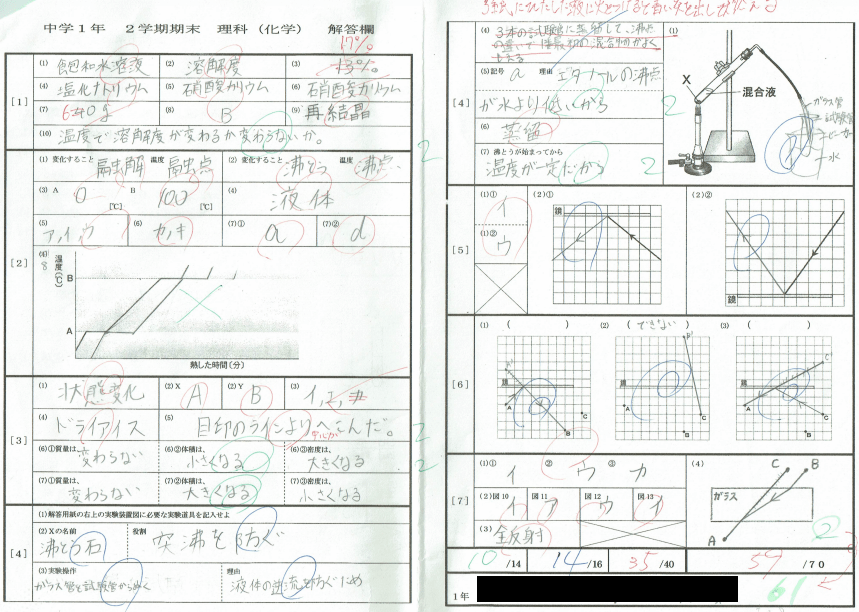 中学1年 2学期期末 理科(化学) 解答欄
17%
[1]
(1) 飽和水溶液 (2) 溶解度 (3)
(4) 塩化ナトリウム (5) 硝酸カリウム (6) 硝酸カリウム
(7) (8) B (9) 再結晶
(10) 温度で溶解度が変わるか変わらないか。
[2]
(1) 変化すること 融解 温度 融点 (2) 変化すること 沸とう 温度 沸点
(3) A 0 [℃] B 100 [℃] (4) 液体
(5) ア,イ,ウ (6) カ,キ (7)① a (7)② d
(8) 温度(℃)
B
A
熱した時間(分)
[3]
(1) 状態変化 (2)X A (2)Y B (3)
(4) ドライアイス (5) 目印のラインよりへこんだ。
(6)①質量は、 変わらない (6)②体積は、 小さくなる (6)③密度は、 大きくなる
(7)①質量は、 変わらない (7)②体積は、 大きくなる (7)③密度は、 小さくなる
[4]
(1)解答用紙の右上の実験装置図に必要な実験道具を記入せよ
(2)Xの名前 沸とう石 役割 突沸を防ぐ
(3)実験操作 ガラス管を試験管からぬく 理由 液体の逆流を防ぐため
[4]
(4) 3本の試験管に蒸留して、沸点
(5)記号 a 理由 エタノールの沸点
が水より低いから 2
(6) 蒸留
(7) 沸とうが始まってから
温度が一定だから 2
(1)
X
混合液
ガラス管
試験管
ビーカー
水
[5]
(1)① イ (2)① 鏡 (2)② 鏡
(1)② ウ
[6]
(1) ( ) (2) (できない) (3) ( )
鏡 鏡 鏡
A B A B C A B C
[7]
(1)① イ ② ウ ③ カ (4)
(2)図10 イ 図11 ア 図12 ウ 図13 イ
(3) 全反射
ガラス
C B
A
2
10 /14 14 /16 35 /40 59 /70
1年
61